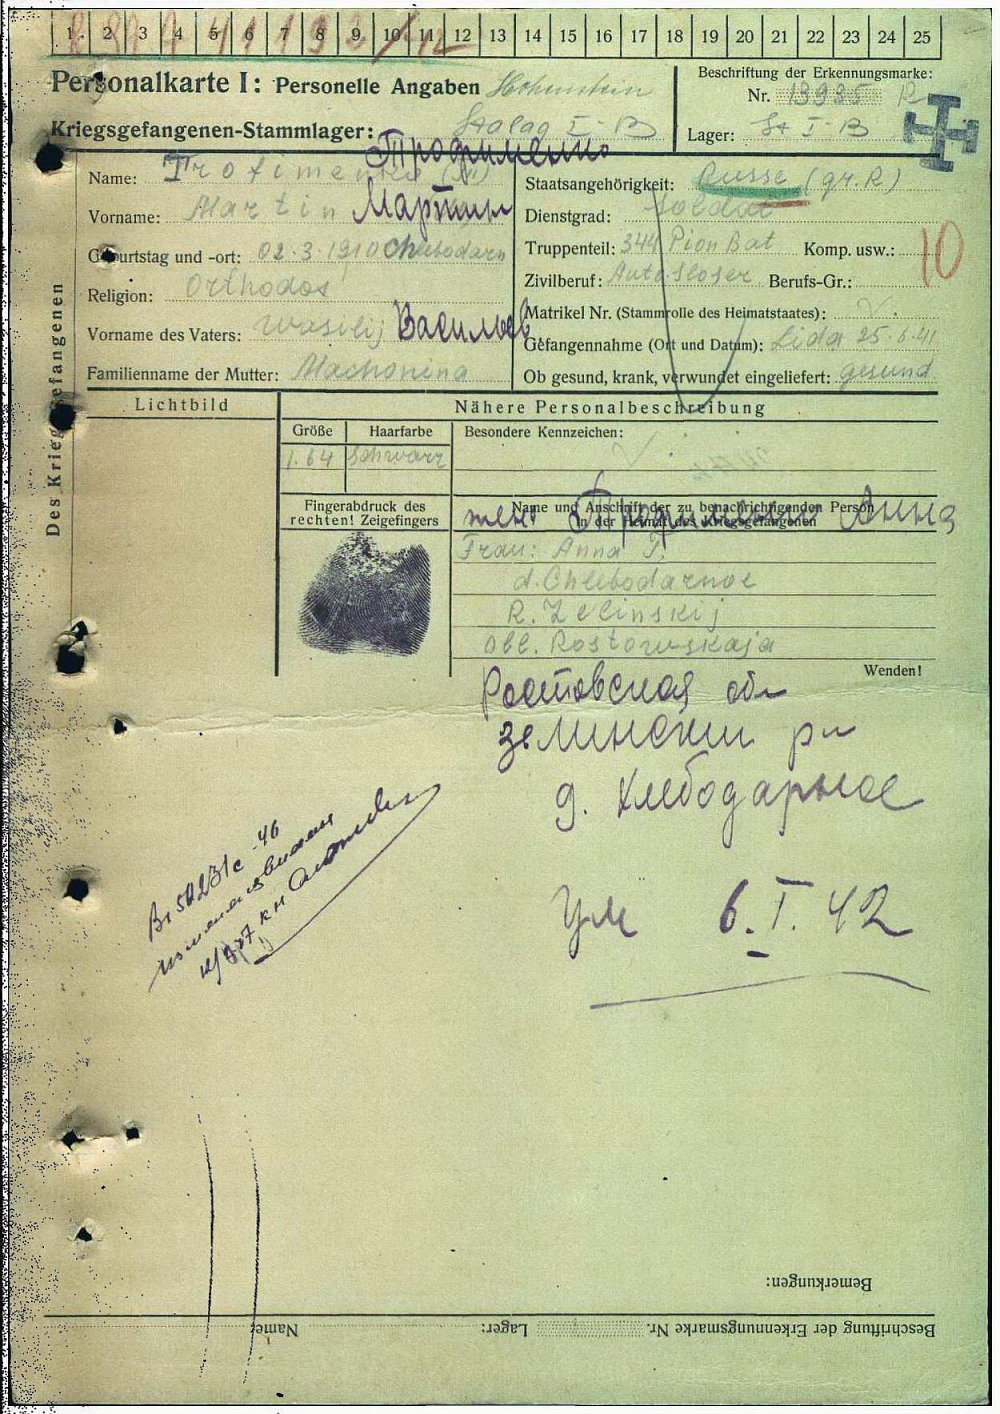 1 2 3 4 5 6 7 8 9 10 11 12 13 14 15 16 17 18 19 20 21 22 23 24 25
Personalkarte I: Personelle Angaben Hohenstein
Kriegsgefangenen-Stammlager: Stalag I-B
Beschriftung der Erkennungsmarke:
Nr. 13935
Lager: St I-B
Des Kriegsgefangenen
Трофименко
Name: Trofimenko
Vorname: Martin Мартын
Geburtstag und -ort: 02.3.1910 Chlebodarn
Religion: Orthodos
Vorname des Vaters: Wasilij Васильев
Familienname der Mutter: Machonina
Staatsangehörigkeit: Russe (gr.R)
Dienstgrad: Soldat
Truppenteil: 344 Pion Bat Komp. usw.: 10
Zivilberuf: Autosloser Berufs-Gr.:
Matrikel Nr. (Stammrolle des Heimatstaates):
Gefangennahme (Ort und Datum): Lida 25.6.41
Ob gesund, krank, verwundet eingeliefert: gesund
Lichtbild
Nähere Personalbeschreibung
Größe Haarfarbe Besondere Kennzeichen:
1.64 Schwarz
Fingerabdruck des
rechten! Zeigefingers
Name und Anschrift der zu benachrichtigenden Person
in der Heimat des Kriegsgefangenen
Трофименко Анна
Frau: Anna T.
d. Chlebodarnoe
R. Zelinskij
Obl. Rostowskaja
Wenden!
Ростовская обл
Зелинский рн
д. Хлебодарное
Ум 6.I.42
Bemerkungen:
Beschriftung der Erkennungsmarke Nr. Lager: Name: